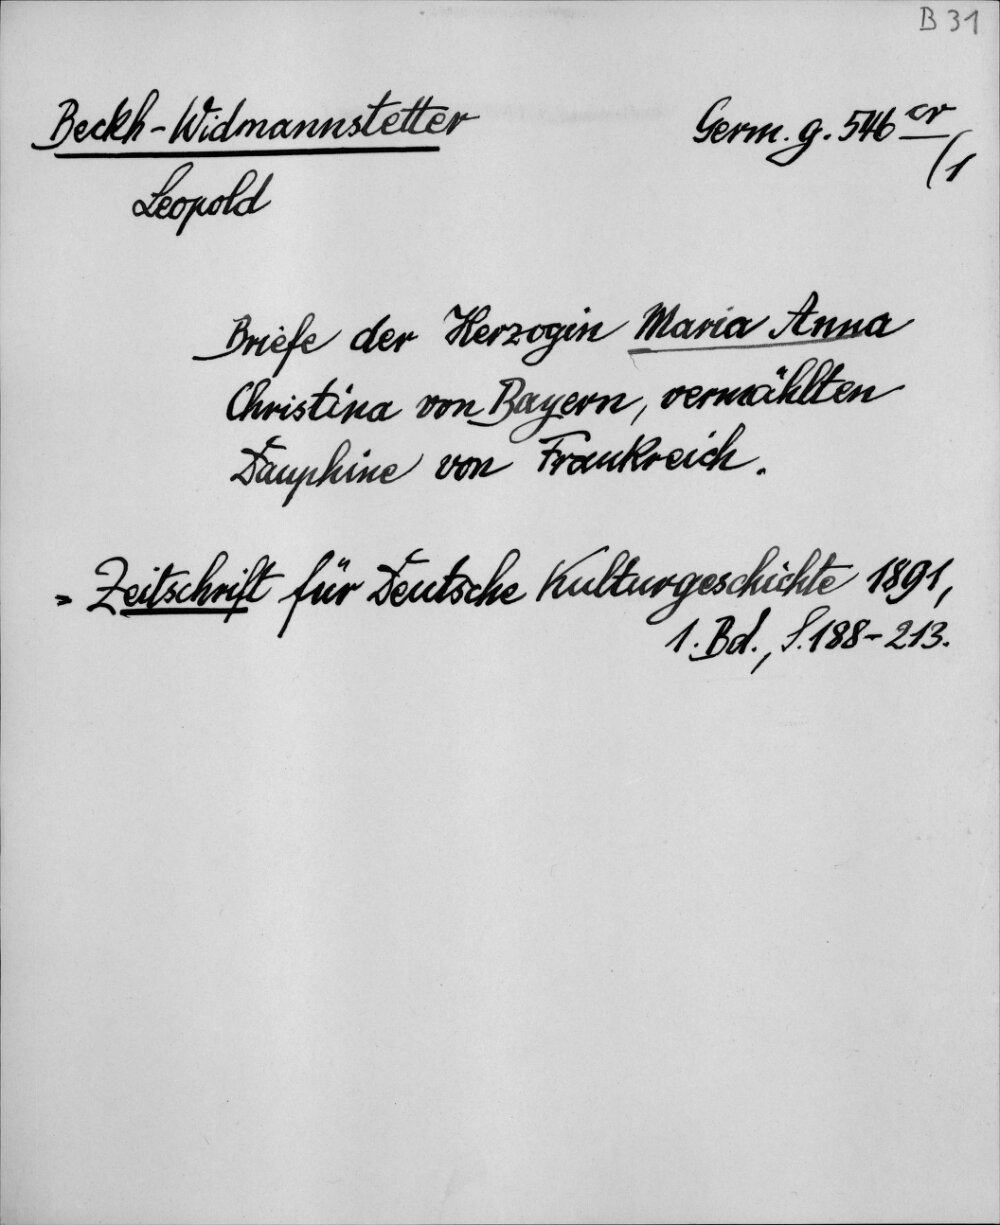 B 31
Beckh-Widmannstetter Germ. g. 546 cr
/1
Leopold
Briefe der Herzogin Maria Anna
Christina von Bayern, vermählten
Dauphine von Frankreich.
Zeitschrift für Deutsche Kulturgeschichte 1891,
1. Bd., S. 188-213.